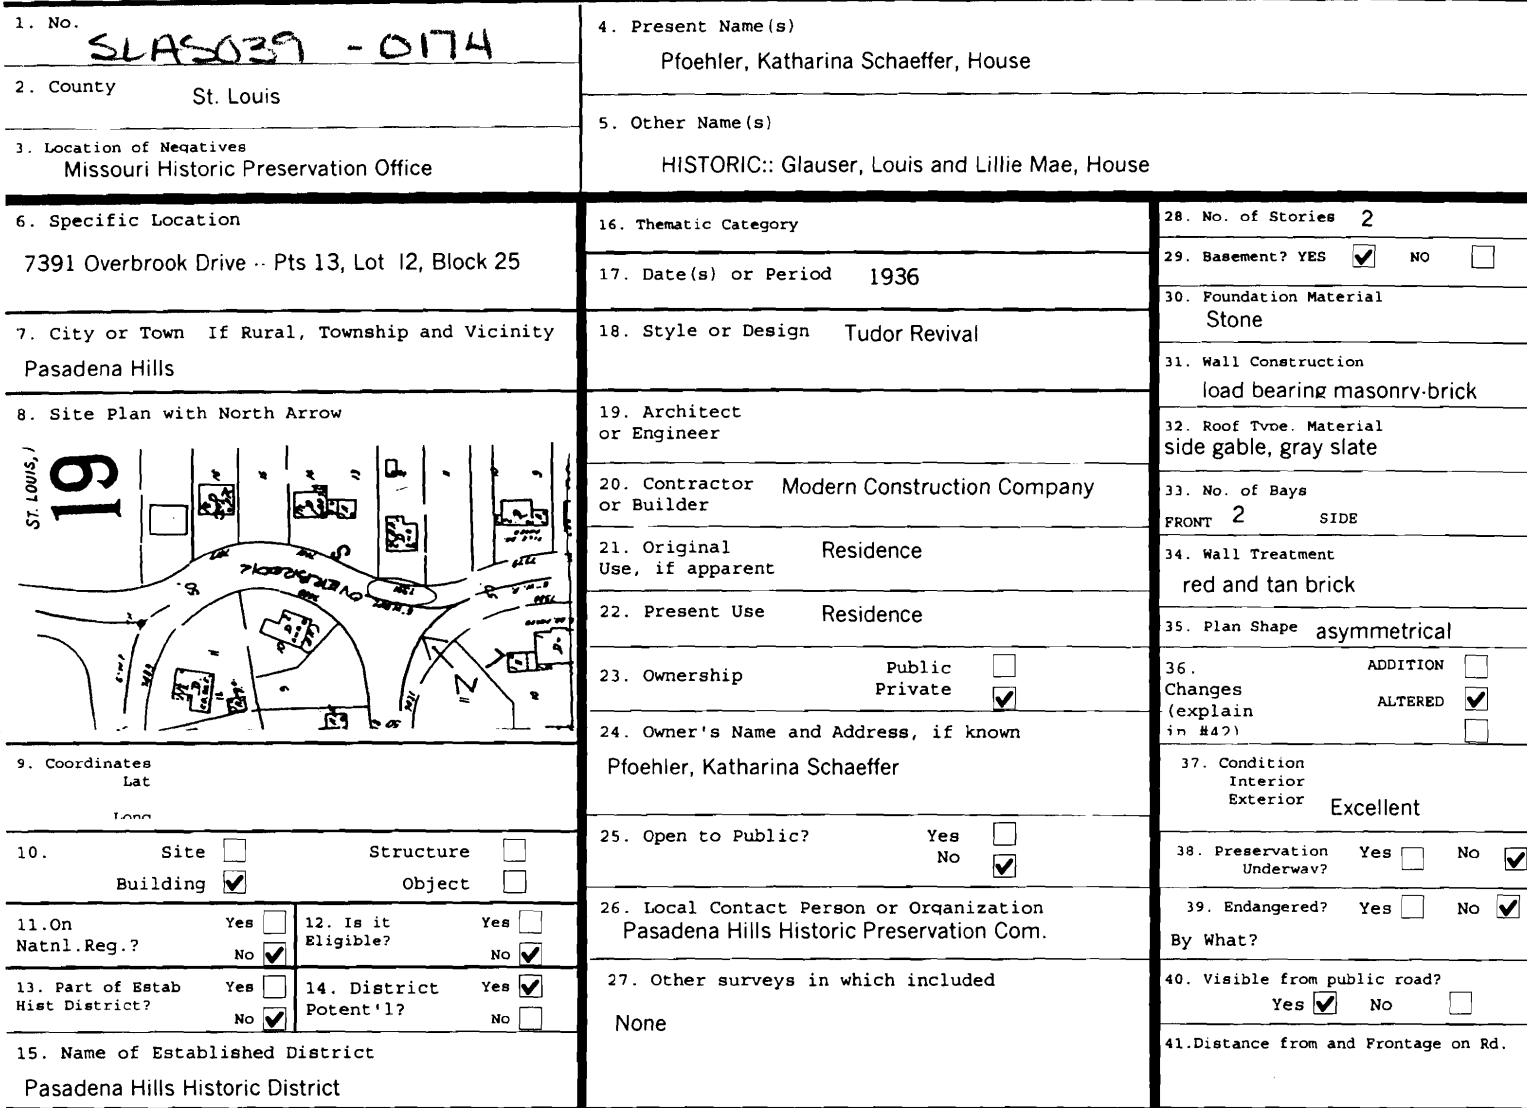 1. No.
SLAS039 - 0174
2. County St. Louis
3. Location of Negatives
Missouri Historic Preservation Office
4. Present Name(s)
Pfoehler, Katharina Schaeffer, House
5. Other Name(s)
HISTORIC:: Glauser, Louis and Lillie Mae, House
6. Specific Location
7391 Overbrook Drive -- Pts 13, Lot 12, Block 25
7. City or Town If Rural, Township and Vicinity
Pasadena Hills
8. Site Plan with North Arrow
ST. LOUIS,
19
OVERBROOK
N
9. Coordinates
Lat
Long
10. Site Structure
Building ✔ Object
11.On Yes
Natnl.Reg.? No ✔
12. Is it Yes
Eligible? No ✔
13. Part of Estab Yes
Hist District? No ✔
14. District Yes ✔
Potent'l? No
15. Name of Established District
Pasadena Hills Historic District
16. Thematic Category
17. Date(s) or Period 1936
18. Style or Design Tudor Revival
19. Architect
or Engineer
20. Contractor Modern Construction Company
or Builder
21. Original Residence
Use, if apparent
22. Present Use Residence
23. Ownership Public
Private ✔
24. Owner's Name and Address, if known
Pfoehler, Katharina Schaeffer
25. Open to Public? Yes
No ✔
26. Local Contact Person or Organization
Pasadena Hills Historic Preservation Com.
27. Other surveys in which included
None
28. No. of Stories 2
29. Basement? YES ✔ NO
30. Foundation Material
Stone
31. Wall Construction
load bearing masonry-brick
32. Roof Type. Material
side gable, gray slate
33. No. of Bays
FRONT 2 SIDE
34. Wall Treatment
red and tan brick
35. Plan Shape asymmetrical
36. ADDITION
Changes ALTERED ✔
(explain
in #42)
37. Condition
Interior
Exterior Excellent
38. Preservation Yes No ✔
Underway?
39. Endangered? Yes No ✔
By What?
40. Visible from public road?
Yes ✔ No
41.Distance from and Frontage on Rd.